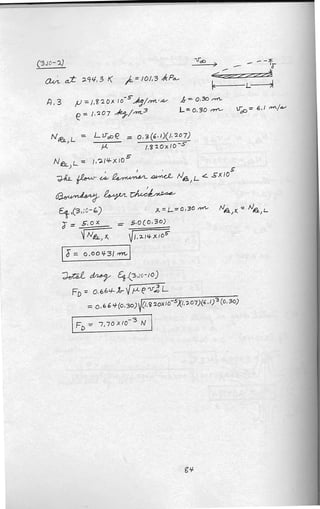 (3.10-2)
v∞
δ
L
Air at 294.3 K p = 101.3 kPa
A.3 μ = 1.820 x 10⁻⁵ kg/m·s b = 0.30 m
ρ = 1.207 kg/m³ L = 0.30 m v∞ = 6.1 m/s
N_Re,L = L v∞ ρ / μ = 0.3(6.1)(1.207) / 1.820 x 10⁻⁵
N_Re,L = 1.214 x 10⁵
The flow is laminar since N_Re,L < 5x10⁵
Boundary layer thickness
Eq. (3.10-6) x = L = 0.30 m N_Re,x = N_Re,L
δ = 5.0 x / √N_Re,x = 5.0(0.30) / √1.214 x 10⁵
δ = 0.00431 m
Total drag Eq. (3.10-10)
F_D = 0.664 b √μ ρ v∞³ L
= 0.664(0.30)√(1.820x10⁻⁵)(1.207)(6.1)³(0.30)
F_D = 7.70 x 10⁻³ N
84